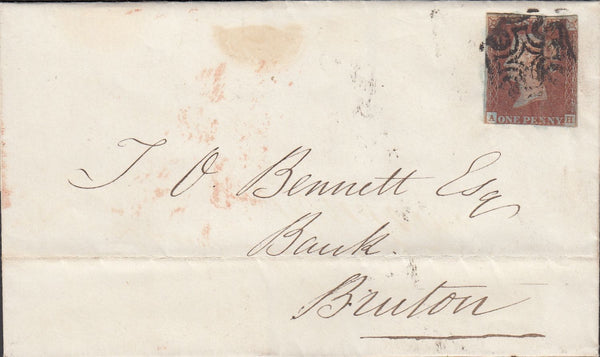 A ONE PENNY H
T O Bennett Esq
Bank.
Bruton